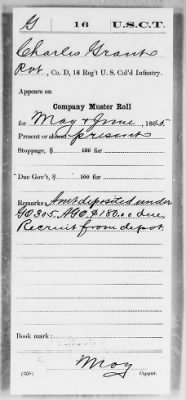 G 16 U.S.C.T.
Charles Grant
Pvt., Co. D, 16 Reg't U. S. Col'd Infantry.
Appears on
Company Muster Roll
for May & June, 1865
Present or absent present
Stoppage, $ 100 for
Due Gov't, $ 100 for
Remarks: Amt deposited under
GO 305. AGO $180.00 due
Recruit from depot
Book mark:
May
(358) Copyist.